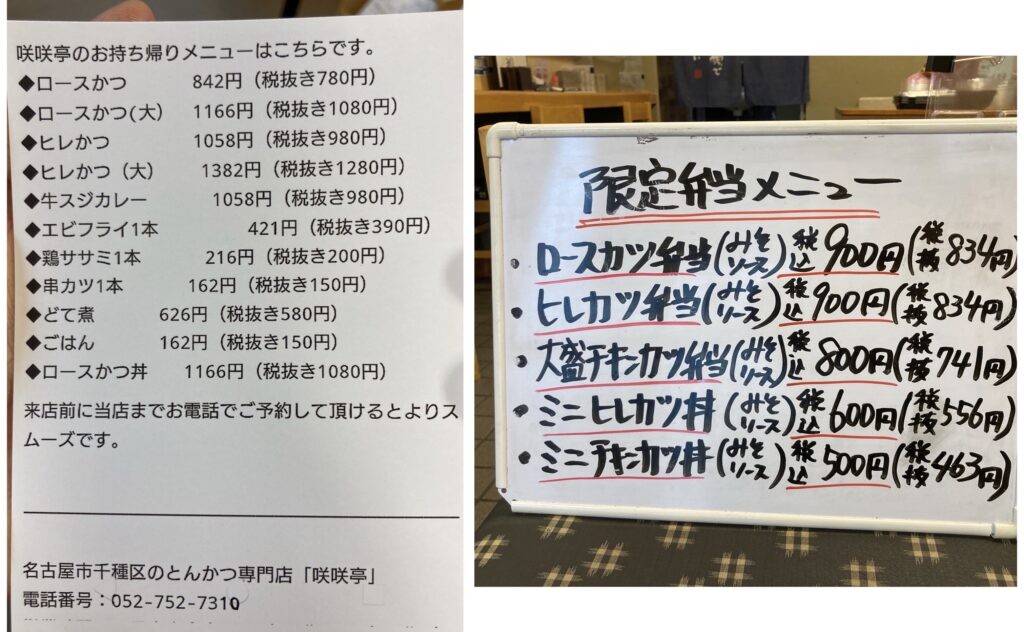 咲咲亭のお持ち帰りメニューはこちらです。
◆ロースかつ 842円（税抜き780円）
◆ロースかつ(大） 1166円（税抜き1080円）
◆ヒレかつ 1058円（税抜き980円）
◆ヒレかつ（大） 1382円（税抜き1280円）
◆牛スジカレー 1058円（税抜き980円）
◆エビフライ1本 421円（税抜き390円）
◆鶏ササミ1本 216円（税抜き200円）
◆串カツ1本 162円（税抜き150円）
◆どて煮 626円（税抜き580円）
◆ごはん 162円（税抜き150円）
◆ロースかつ丼 1166円（税抜き1080円）
来店前に当店までお電話でご予約して頂けるとよりス
ムーズです。
名古屋市千種区のとんかつ専門店「咲咲亭」
電話番号：052-752-7310
限定弁当メニュー
・ロースカツ弁当(みそソース)税込900円(税抜834円)
・ヒレカツ弁当(みそソース)税込900円(税抜834円)
・大盛チキンカツ弁当(みそソース)税込800円(税抜741円)
・ミニヒレカツ丼(みそソース)税込600円(税抜556円)
・ミニチキンカツ丼(みそソース)税込500円(税抜463円)